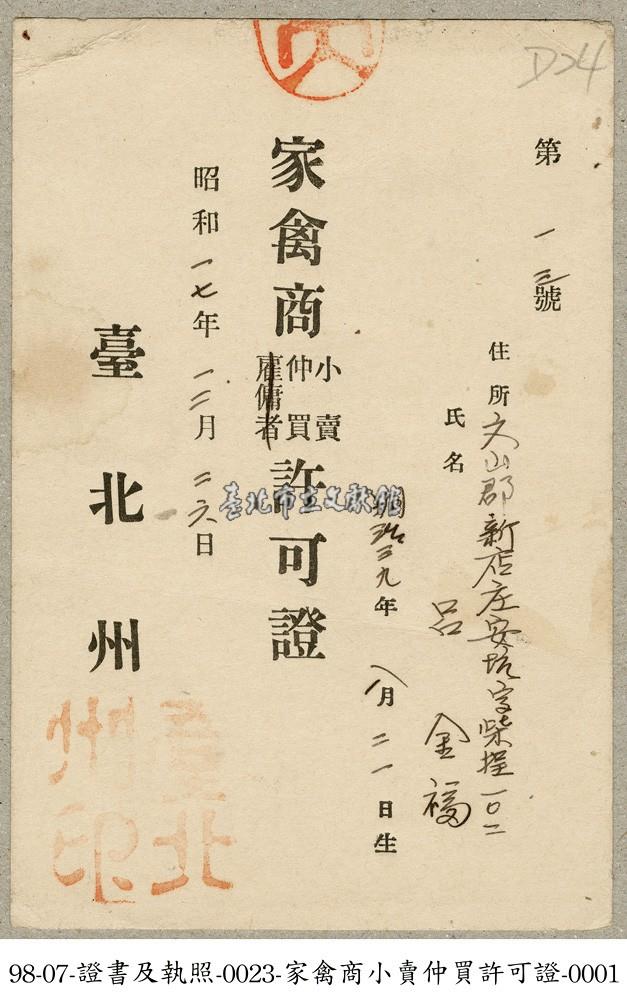 D24
第一三號
住所 文山郡新店庄安坑字柴埕一〇二
氏名 呂金福
明治三九年八月二一日生
家禽商
小賣
仲買
雇傭者
許可證
昭和一七年一二月二六日
臺北州
臺北市立文獻館
98-07-證書及執照-0023-家禽商小賣仲買許可證-0001